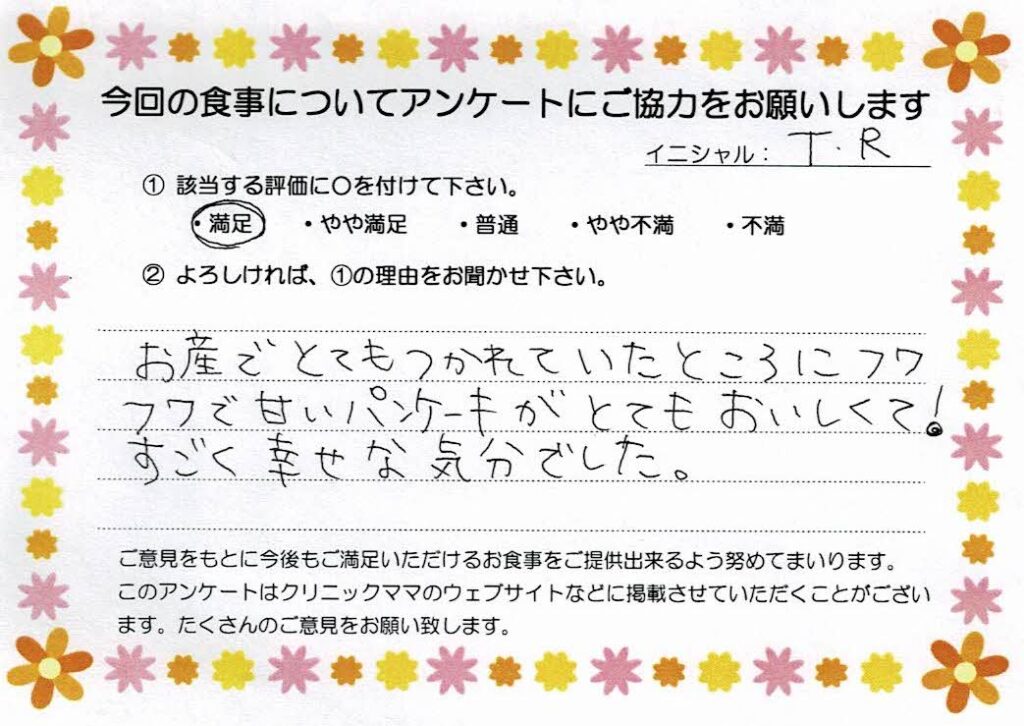 今回の食事についてアンケートにご協力をお願いします
イニシャル： T.R
① 該当する評価に〇を付けて下さい。
・満足 ・やや満足 ・普通 ・やや不満 ・不満
② よろしければ、①の理由をお聞かせ下さい。
お産でとてもつかれていたところにフワ
フワで甘いパンケーキがとてもおいしくて!
すごく幸せな気分でした。
ご意見をもとに今後もご満足いただけるお食事をご提供出来るよう努めてまいります。
このアンケートはクリニックママのウェブサイトなどに掲載させていただくことがござい
ます。たくさんのご意見をお願い致します。